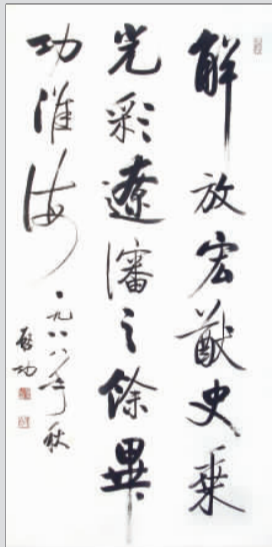 解放宏猷史乘
光彩遼瀋之餘畢
功淮海
一九八八年秋
啟功